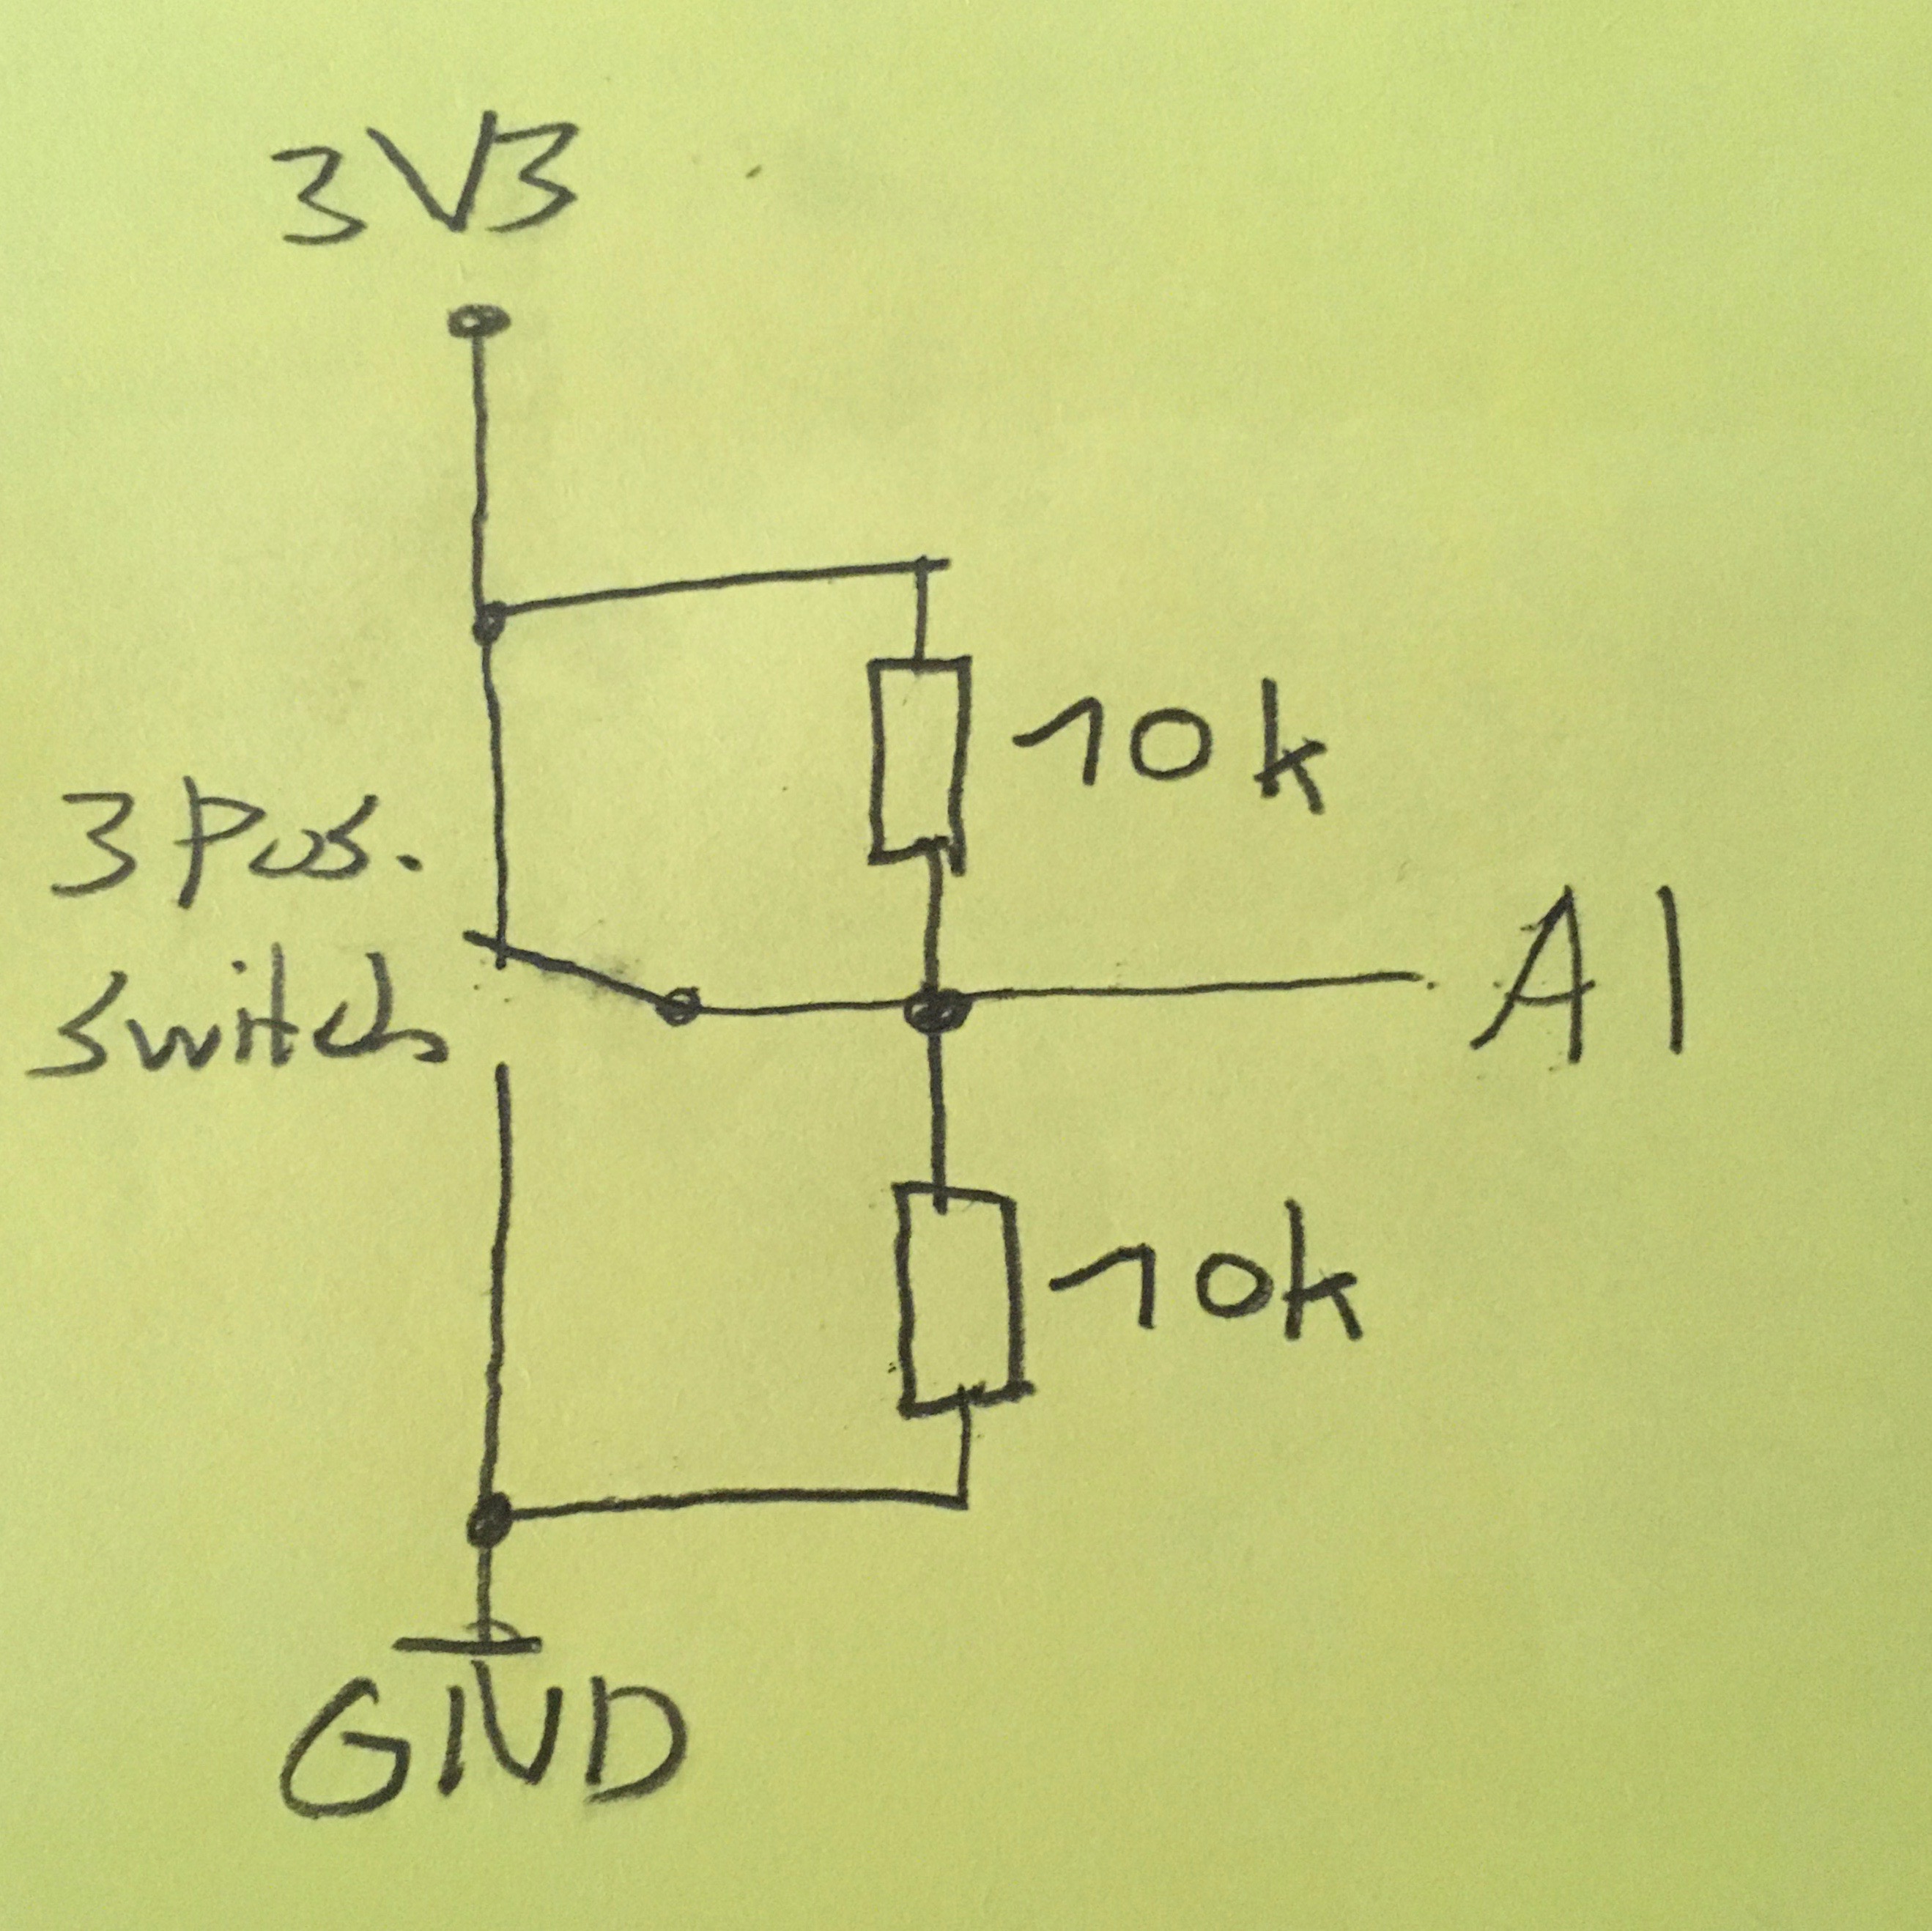 3V3
10k
3 Pos.
Switch
A1
10k
GND